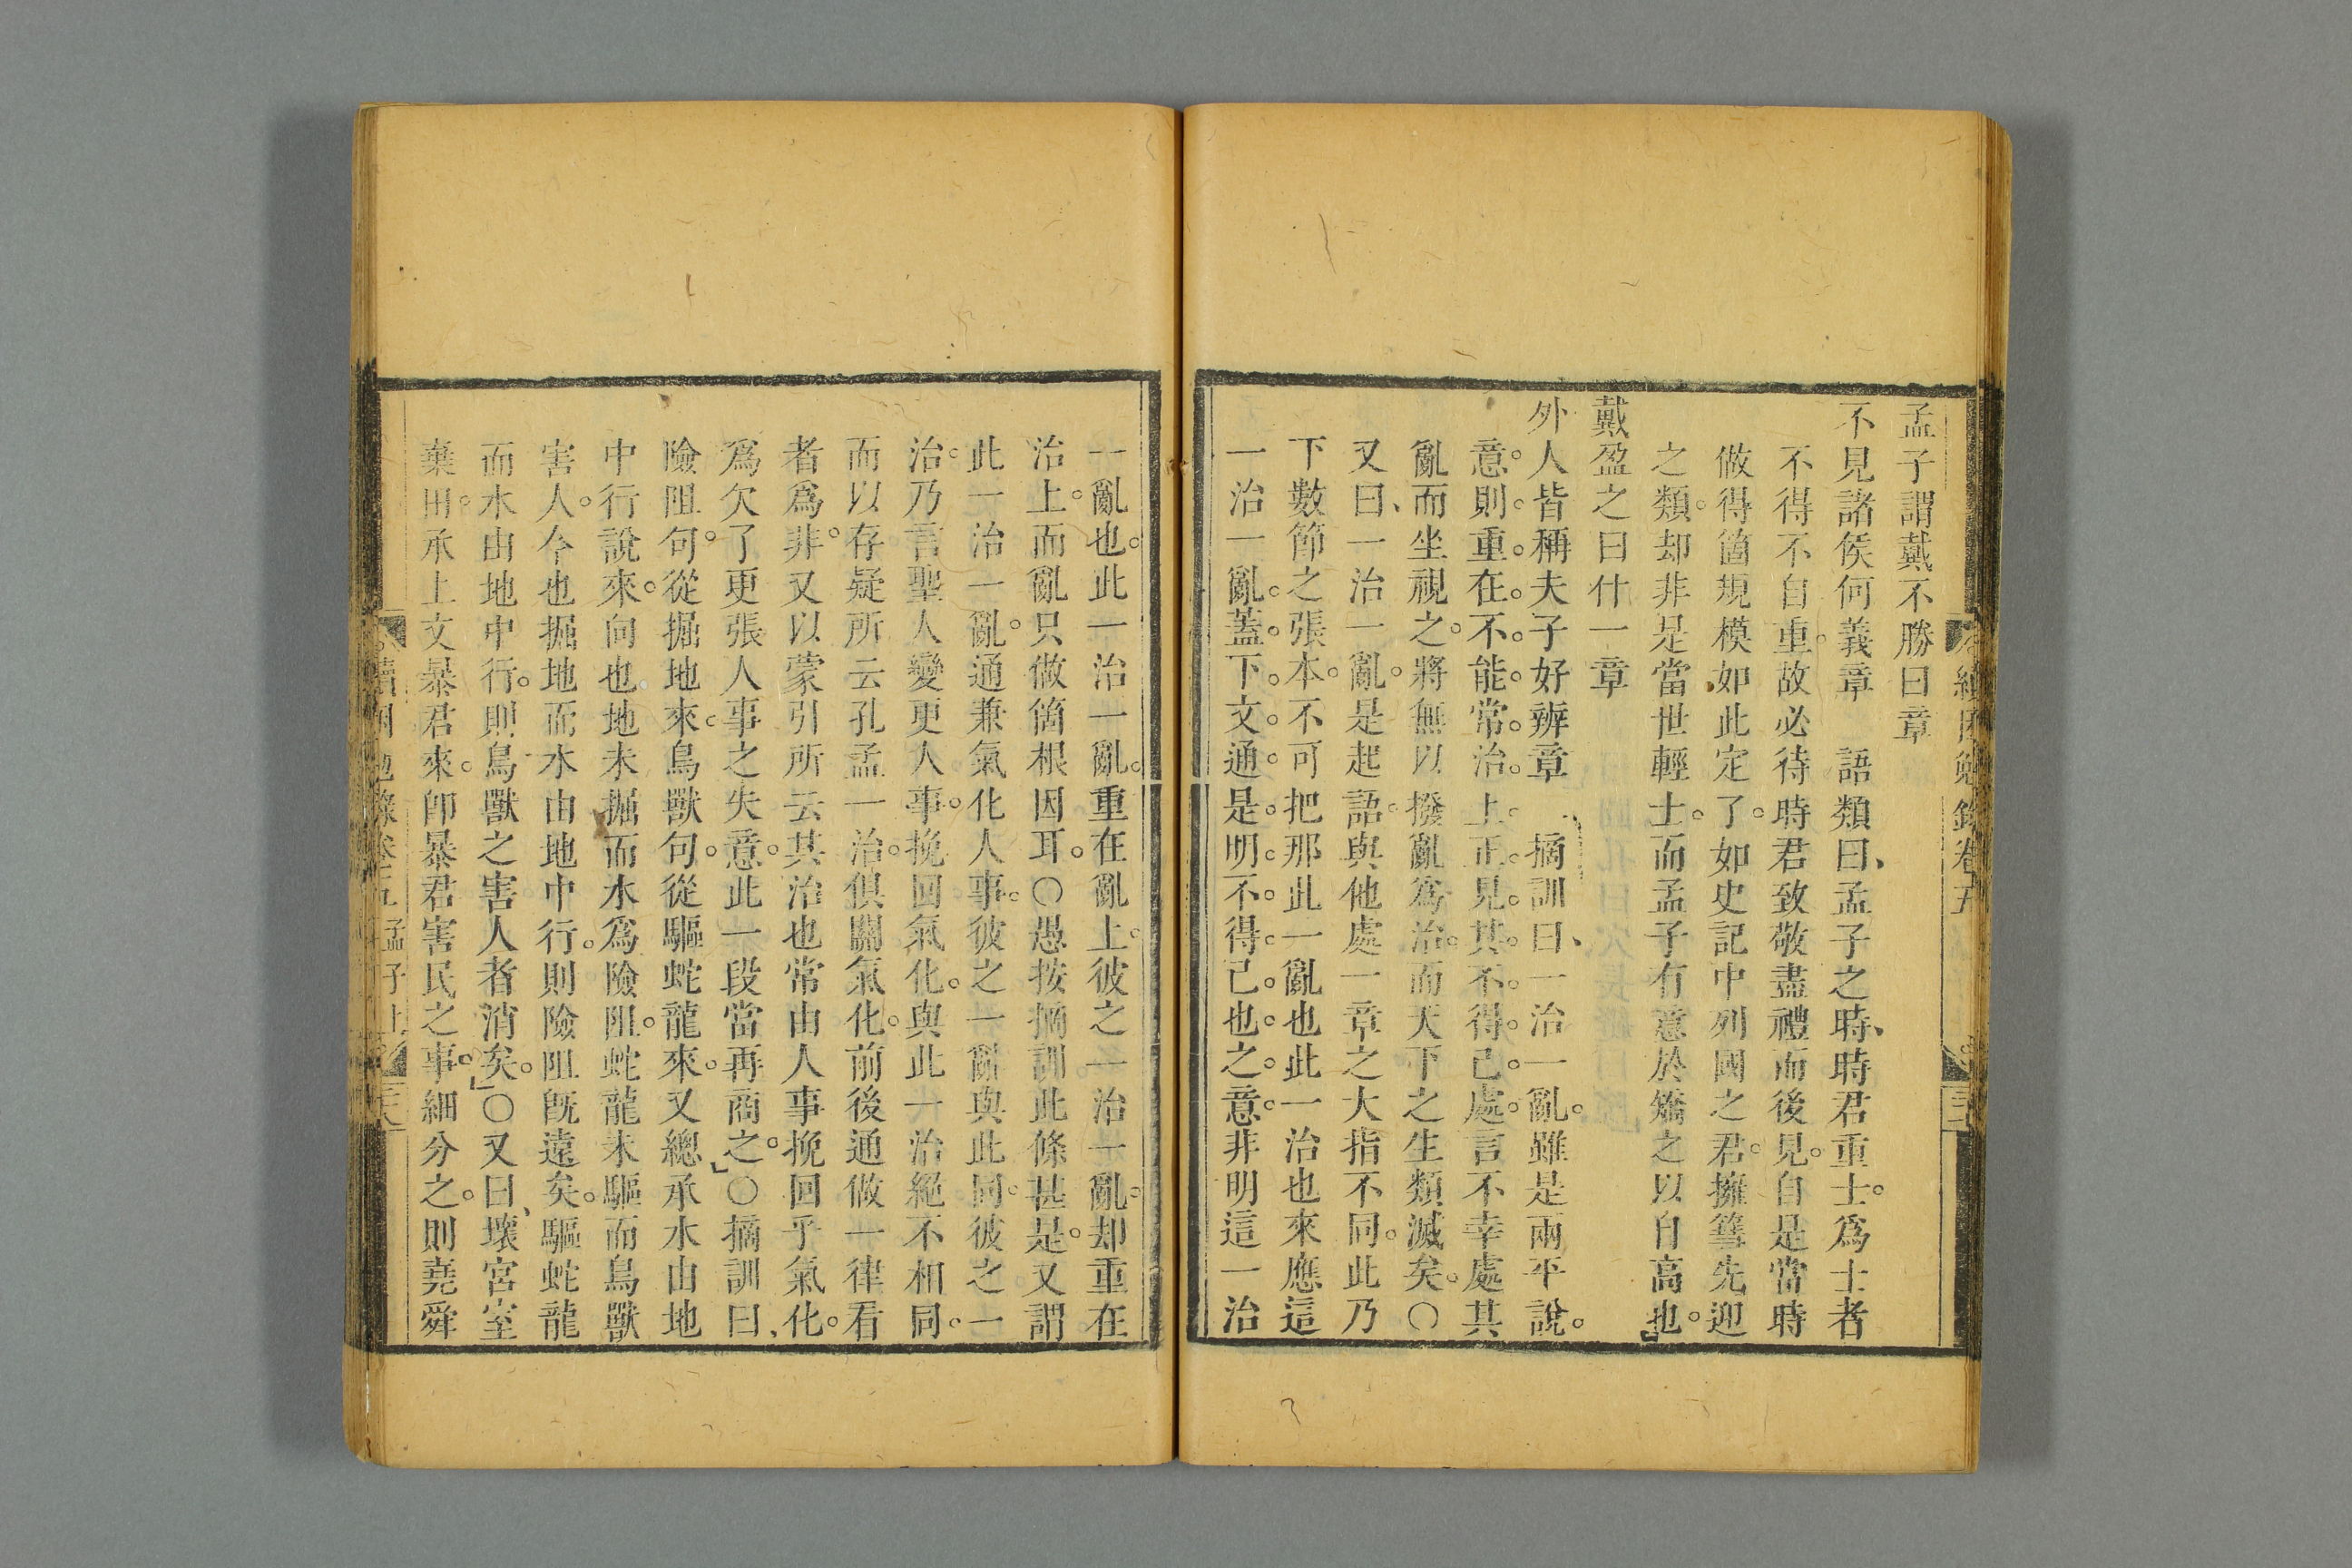 孟子謂戴不勝曰章
不見諸侯何義章　語類曰、孟子之時、時君重士。爲士者
不得不自重。故必待時君致敬盡禮而後見。自是當時
做得箇規模如此定了。如史記中列國之君。擁篲先迎
之類。却非是當世輕士。而孟子有意於矯之以自高也。」
戴盈之曰什一章
外人皆稱夫子好辨章　摘訓曰、一治一亂。雖是兩平說。
意。則重。在。不。能。常。治。上。正。見。其。不。得。已。處。言不幸處其
亂而坐視之。將無以撥亂爲治。而天下之生類滅矣。○
又曰、一治一亂。是起語。與他處一章之大指不同。此乃
下數節之張本。不可把那此一亂也此一治也來應這
一治一亂。蓋。下。文。通。是。明。不。得。已。也。之。意。非明這一治
一亂也。此一治一亂。重在亂上。彼之一治一亂。却重在
治上。而亂只做箇根因耳。○愚按摘訓此條甚是。又謂
此一治一亂。通兼氣化人事。彼之一亂與此同。彼之一
治。乃言聖人變更人事。挽回氣化。與此一治絕不相同。
而以存疑所云孔孟一治。俱關氣化。前後通做一律看
者爲非。又以蒙引所云其治也常由人事挽回乎氣化。
爲欠了更張人事之失意。此一段當再商之。」○摘訓曰、
險阻句。從掘地來。鳥獸句。從驅蛇龍來。又總承水由地
中行說來。向也地未掘而水爲險阻。蛇龍未驅而鳥獸
害人。今也掘地而水由地中行。則險阻旣遠矣。驅蛇龍
而水由地中行。則鳥獸之害人者消矣。」○又曰、壞宮室
棄田。承上文暴君來。卽暴君害民之事。細分之。則堯舜
續困勉錄卷五
孟子上